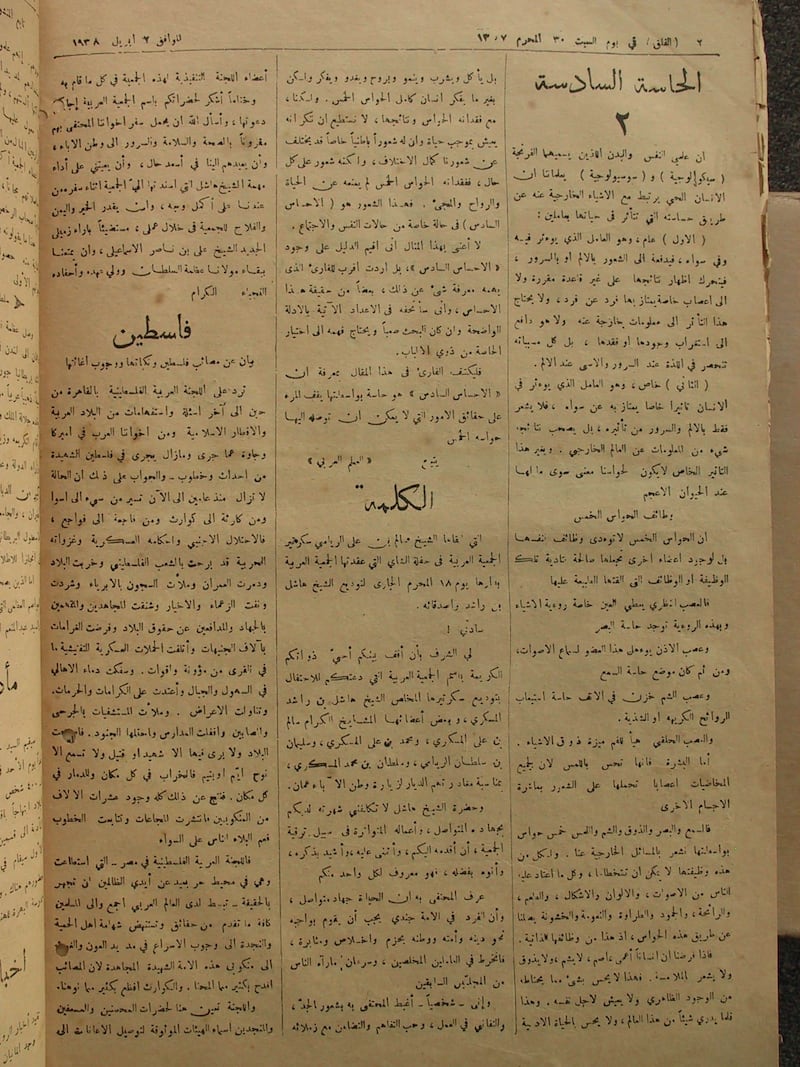 ٢ ( الفلق ) في يوم السبت ٣٠ المحرم ١٣٥٧
الموافق ٢ ابريل ١٩٣٨
الحاسة السادسة
٢
ان علمي النفس والبدن اللذين يسميهما الفرنجة
( سيكولوجية ) و ( سوسيولوجية ) يعلماننا ان
الانسان الحي يرتبط مع الاشياء الخارجية عنه عن
طريق حساسته التي تتأثر في حياتها بعاملين :
( الاول ) عام ، وهو العامل الذي يوءثر فيه
وفي سواء ، فيدفعه الى الشعور بالالم أو بالسرور ،
فيتحرك اظهار نتائجها على غير قاعدة مقررة ولا
الى أعصاب خاصة يمتاز بها فرد عن فرد ، ولا يحتاج
هذا التأثر الى معلومات خارجة عنه ولا هو دافع
الى استغراب وجودها أو فقدها ، بل كل مسبباته
تنحصر في اللذة عند السرور والاسى عند الالم .
( الثاني ) خاص ، وهو العامل الذي يوءثر في
الانسان تأثيرا خاصا يمتاز به عن سواه ، فلا يشعر
فقط بالالم والسرور من تأثيره ، بل يصحب نتائجه
شيء من المعلومات عن العالم الخارجي . وبغير هذا
التاثير الخاص لايكون لحواسنا معنى سوى ما لها
عند الحيوان الاعجم
وظائف الحواس الخمس
ان الحواس الخمس لاتوءدى وظائف انفسها
بل لوجود أعضاء أخرى تجعلها صالحة لتادية تلك
الوظيفة أو الوظائف الى الفتها الطبيعة عليها
فالعصب النظري يعطي العين خاصة روءية الاشياء
وبهذه الروءية توجد حاسة البصر
وعصب الاذن يوءهل هذا العضو لسماع الاصوات،
ومن ثم كان موضع حاسة السمع
وعصب الشم خزن في الانف حاسة استيعاب
الروائح الكريهه أو الشذية .
والعصب الحلقي هيأ للفم ميزة ذوق الاشياء .
أما البشرة فانها تحس باللمس لان لجميع
الحاضيات اعصابا تحملها على الشعور بمباشرة
الاجسام الاخرى
فالسمع والبصر والذوق والشم واللمس خمس حواس
بواسطتها نشعر بالمسائل الخارجية عنا . ولكل من
هذه وظيفتها لا يمكن أن تتخطاها ، وكل ما اعتاد عليه
الناس من الاصوات ، والالوان والاشكال ، والطعم ،
والرائحة، والجمود والطراوة والنعومة والخشونة يصلنا
عن طريق هذه الحواس ، اذ هذا من وظائفها الذاتية .
فاذا فرضنا ان انسانا أعمى، أصم، لايشم، ولايذوق
ولا يشعر الملامسة . فهذا لايحس بشئ مما يحتاطه
من الوجود الظاهري ولا يعيش لاجل نفسه . وهذا
قلما يدري شيئاً من هذا العالم ، ولا يحس بالحياة الادبية
بل يأكل ويشرب وينمو ويروح ويغدو ويفكر ولكن
بغير ما يفكر انسان كامل الحواس الخمس . ولكننا ،
مع فقدانه الحواس ونتائجها ، لا نستطيع ان ننكر انه
يعيش بموجب حياة وان له شعوراً باطنياً خاصاً قد يختلف
عن شعورنا كمال الاختلاف ، ولكنه شعور على كل
حال ، ففقدانه الحواس الخمس لم يمنعه عن الحياة
والرواح والمجئ . فهذا الشعور هو ( الاحساس
السادس ) في حالة خاصة من حالات النفس والاجتماع .
لا أعني بهذا المثال انى أقيم الدليل على وجود
« الاحساس السادس » بل اردت أقرب للقارئ الذى
يهمه معرفة شئ عن ذلك ، بعضاً من حقيقة هذا
الاحساس ، وأنى سأتحفه في الاعداد الآتية بالادلة
الواضحة وان كان البحث صعباً ويحتاج فهمه الى اختيار
الخاصة من ذوي الالباب .
فليكتف القارئ في هذا المقال بمعرفة ان
« الاحساس السادس » هو حاسة بواسطتها يقف المرء
على حقائق الامور التي لا يمكن أن توصله اليها
حواسه الخمس
يتبع « المعلم العربي »
الكلمة
التي القاها الشيخ صالح بن على الريامي سكرتير
الجمعية العربية فى حفلة الشاي التي عقدتها الجمعية العربية
بدارها يوم ١٨ المحرم الجارى لتوديع الشيخ هاشل
بن راشد واصدقائه .
سادتي !
لي الشرف بأن أقف بينكم أحيي ذواتكم
الكريمة باسم الجمعية العربية التي دعتكم للاحتفال
بتوديع سكرتيرها المخلص الشيخ هاشل بن راشد
المسكري ، وبعض أعضائها المشايخ الكرام سالم
بن على المسكري ، ومحمد بن على المسكري ، وسليمان
بن سلطان الريامي ، وسلطان بن محمد المسكري ،
بمناسبة مغادرتهم الديار لزيارة وطن الآباء عمان .
وحضرة الشيخ هاشل لا تكلفني شهرته لديكم
بجهاده المتواصل ، وأعماله المتواترة فى سبيل ترقية
الجمعية ، أن أقدمه اليكم ، وأثني عليه ، وأشيد بذكره ،
وأنوه بفضله ، فهو معروف لكل واحد منكم
عرف المحتفى به ان الحياة جهاد متواصل ،
وأن الفرد في الامة جندي يجب أن يقوم بواجبه
نحو دينه وأمته ووطنه بحزم واخلاص ومثابرة ،
فانخرط في العاملين المخلصين ، وسرعان مارآه الناس
من المجلّين السابقين
وإني – شخصياً – أغبط المحتفى به بشعور الجد ،
والتفاني في العمل ، وحب التفاهم والتضامن مع زملائه
أعضاء اللجنة التنفيذية لهذه الجمعية في كل ما قام به
وختاماً أشكر لحضراتكم باسم الجمعية العربية إجابتكم
دعوتها ، وأسأل الله أن يجعل سفر اخواننا المحتفى بهم
مقروناً بالصحة والسلامة والسرور الى وطن الاباء ،
وأن يعيدهم الينا في أسعد حال ، وأن يعينني على أداء
مهمة الشيخ هاشل التي اسندتها الي الجمعية اثناء سفره من
عندنا على أكمل وجه ، وان يقدر الخير واليمن
والفلاح للجمعية في خلال عملي ، مستضيئاً باراء زميلي
الجديد الشيخ على بن ناصر الاسماعيلي ، وان يمتعنا
ببقاء مولانا عظمة السلطان وولي عهده وأحفاده
النجباء الكرام
فلسطين
بيان عن مصائب فلسطين ونكباتها ووجوب اغاثتها
ترد على اللجنة العربية الفلسطينية بالقاهرة من
حين الى آخر اسئلة واستفهامات من البلاد العربية
والاقطار الاسلامية ومن اخواننا العرب في أميركا
وجاوة عما جرى ومازال يجرى في فلسطين الشهيدة
من احداث وخطوب – والجواب على ذلك ان الحالة
لا تزال منذ عامين الى الآن تسير من سيء الى اسوأ
ومن كارثة الى كوارث ومن فاجعة الى فواجع ،
فالاحتلال الاجنبي واحكامه العسكرية وغزواته
الحربية قد برحت بالشعب الفلسطيني وخربت البلاد
ودمرت العمران وملأت السجون بالابرياء وشردت
ونفت الزعماء والاخيار وشنقت المجاهدين والمتهمين
بالجهاد والمدافعين عن حقوق البلاد وفرضت الغرامات
بآلاف الجنيهات وأتلفت الحملات العسكرية التفتيشية ما
في القرى من مؤونة واقوات . وسفكت دماء الاهالي
في السهول والجبال وأعتدت على الكرامات والحرمات.
وتناولت الاعراض . وملأت المستشفيات بالجرحى
والمصابين واقفلت المدارس واحتلها الجنود .
البلاد ولا يرى فيها الا شهيد او قتيل ولا تسمع الا
نوح ايم او يتيم فالخراب في كل مكان والدمار في
كل مكان . فنتج عن ذلك كله وجود عشرات الآلاف
من المنكوبين ما تشرت المجاعات وتتابعت الخطوب
فهم البلاء الناس على السواء
فاللجنة العربية الفلسطينية في مصر – التي استطاعت
وهي في محيط حر بعيد عن أيدي الظالمين ان تجهر
بالحقيقة – تبسط لدى العالم العربي أجمع والى المسلمين
كافة ما تقدم من حقائق وتستنهض شهامة أهل الحمية
والنجدة الى وجوب الاسراع في مد يد العون والغوث
الى منكوبي هذه الامة الشهيدة المجاهدة لان المصائب
افدح بكثير مما لمحنا . والكوارث افظع بكثير مما نوهنا.
واللجنة تعين هنا لحضرات المحسنين والمسعفين
والمنجدين أسماء الهيئات الموثوقة لتوصيل الاعانات الى